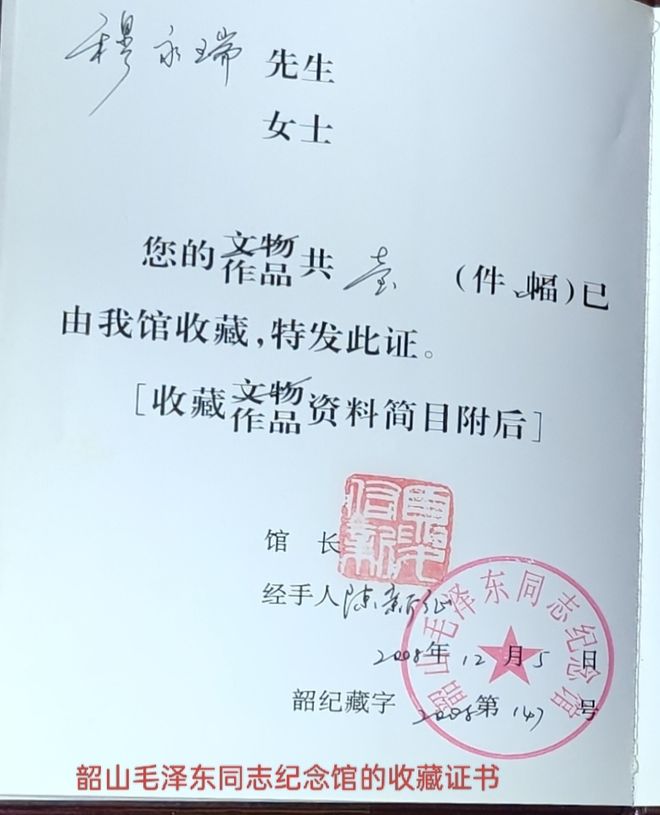 穆永瑞 先生
女士
您的文物作品共 壹 (件、幅)已
由我馆收藏,特发此证。
[收藏文物作品资料简目附后]
馆 长
经手人 陈新征
2008年 12 月 5 日
韶纪藏字 2008第 147 号
韶山毛泽东同志纪念馆
韶山毛泽东同志纪念馆的收藏证书